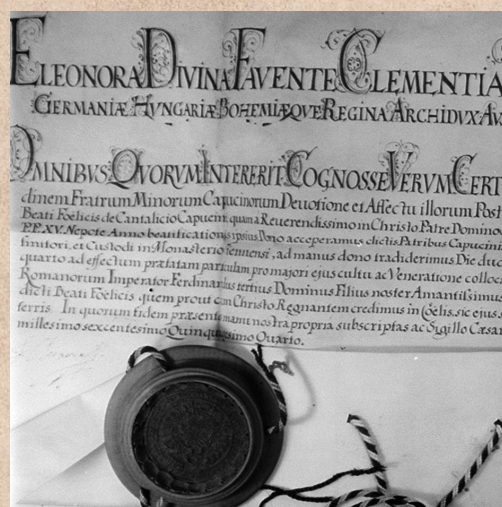 ELEONORA DIVINA FAVENTE CLEMENTIA
GERMANIÆ HVNGARIÆ BOHEMIÆQVE REGINA ARCHIDVX AV
OMNIBVS QVORVM INTERERIT COGNOSSE VERVM CERT
dinem Fratrum Minorum Capucinorum Deuotione et Affectu illorum Post
Beati Fœlicis de Cantalicio Capucini, quam a Reuerendissimo in Christo Patre Domino
P.P. XV. Nepote Anno beatificationis ipsius Dono acceperamus dictis Patribus Capucini
finitori, et Custodi in Monasterio ad manus dono tradiderimus Die duc
quarto ad effectum præfatam particulam pro majori ejus cultu ac Veneratione colloc
Romanorum Imperator Ferdinandus tertius Dominus Filius noster Amantissimus
dicti Beati Fœlicis, quem prout cum Christo Regnantem credimus in Cœlis, sic ejus
terris. In quorum fidem præsentes manu nostra propria subscriptas ac Sigillo Cæsar
millesimo sexcentesimo Quinquagesimo Quarto.